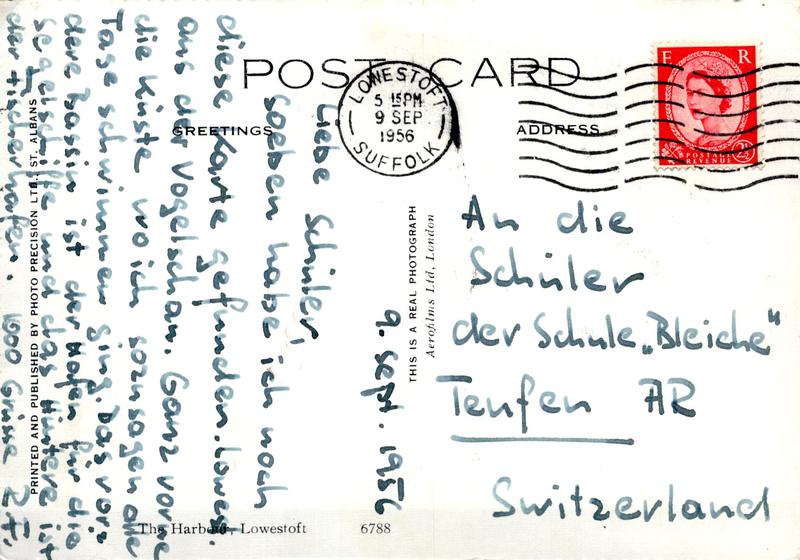 POST CARD
GREETINGS
ADDRESS
LOWESTOFT
5 15PM
9 SEP
1956
SUFFOLK
E R
POSTAGE
REVENUE
2½
9. Sept. 1956
Liebe Schüler,
soeben habe ich noch
diese Karte gefunden. Lowest.
aus der Vogelschau. Ganz vorne
die Küste wo ich sozusagen alle
Tage schwimmen ging. Das vor-
dere Bassin ist der Hafen für die
Segelschiffe und das Hintere ist
der Fischerhafen. 1000 Grüsse
An die
Schüler
der Schule „Bleiche"
Teufen AR
Switzerland
THIS IS A REAL PHOTOGRAPH
Aerofilms Ltd, London
PRINTED AND PUBLISHED BY PHOTO PRECISION LTD., ST. ALBANS
The Harbour, Lowestoft 6788